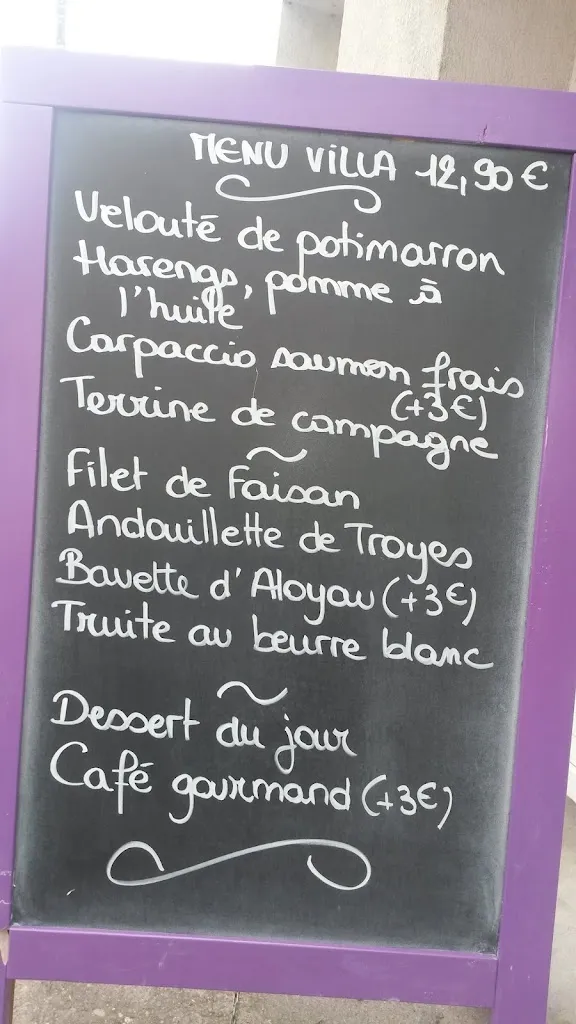 MENU VILLA 12,90 €
Velouté de potimarron
Harengs, pomme à
l'huile
Carpaccio saumon frais
(+3€)
Terrine de campagne
~
Filet de Faisan
Andouillette de Troyes
Bavette d'Aloyau (+3€)
Truite au beurre blanc
~
Dessert du jour
Café gourmand (+3€)